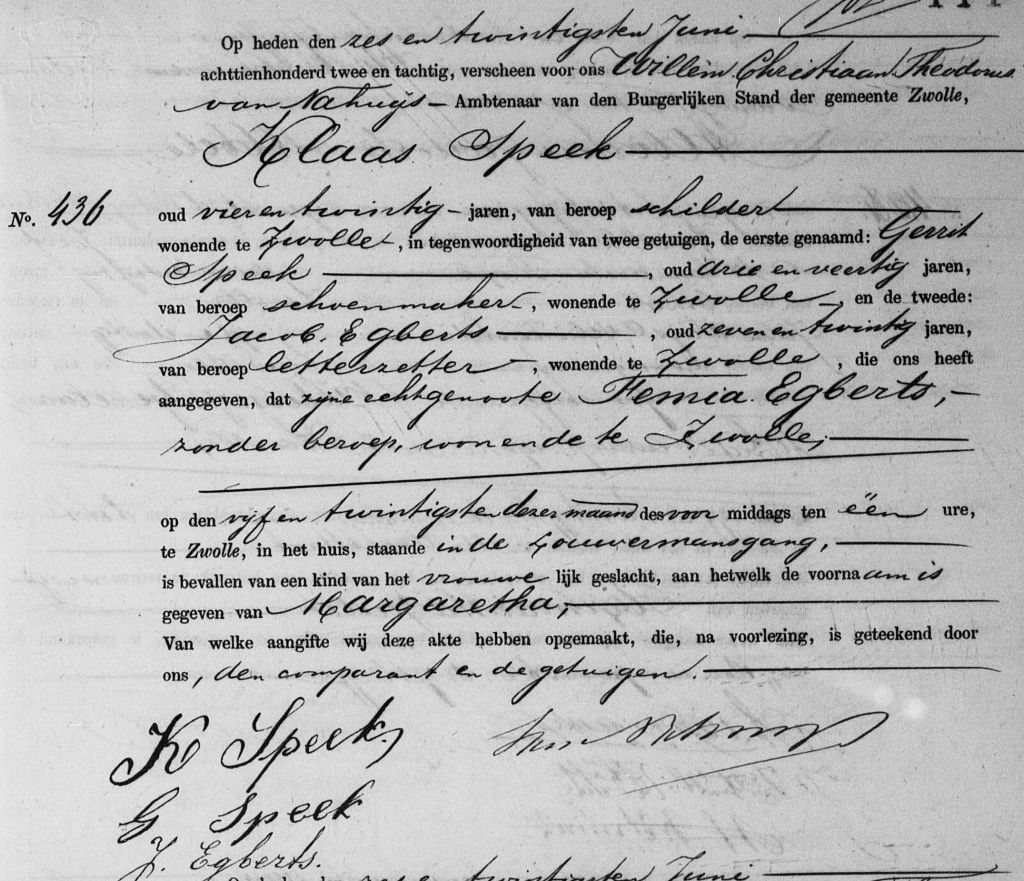 Op heden den zes en twintigsten Juni
achttienhonderd twee en tachtig, verscheen voor ons Willem Christiaan Theodorus
van Nahuijs – Ambtenaar van den Burgerlijken Stand der gemeente Zwolle,
Klaas Speek
No. 436
oud vier en twintig – jaren, van beroep schilder
wonende te Zwolle, in tegenwoordigheid van twee getuigen, de eerste genaamd: Gerrit
Speek, oud drie en veertig jaren,
van beroep schoenmaker, wonende te Zwolle, en de tweede:
Jacob. Egberts, oud zeven en twintig jaren,
van beroep letterzetter, wonende te Zwolle, die ons heeft
aangegeven, dat zijne echtgenoote Femia. Egberts,
zonder beroep, wonende te Zwolle,
op den vijf en twintigsten dezer maand des voor middags ten één ure,
te Zwolle, in het huis, staande in de Louwermansgang,
is bevallen van een kind van het vrouwe lijk geslacht, aan hetwelk de voornaam is
gegeven van Margaretha,
Van welke aangifte wij deze akte hebben opgemaakt, die, na voorlezing, is geteekend door
ons, den comparant en de getuigen.
K Speek,
G Speek
J. Egberts.
zes en twintigsten Juni